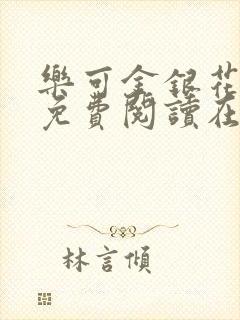 樂可金銀花
免費閱讀在
林言傾